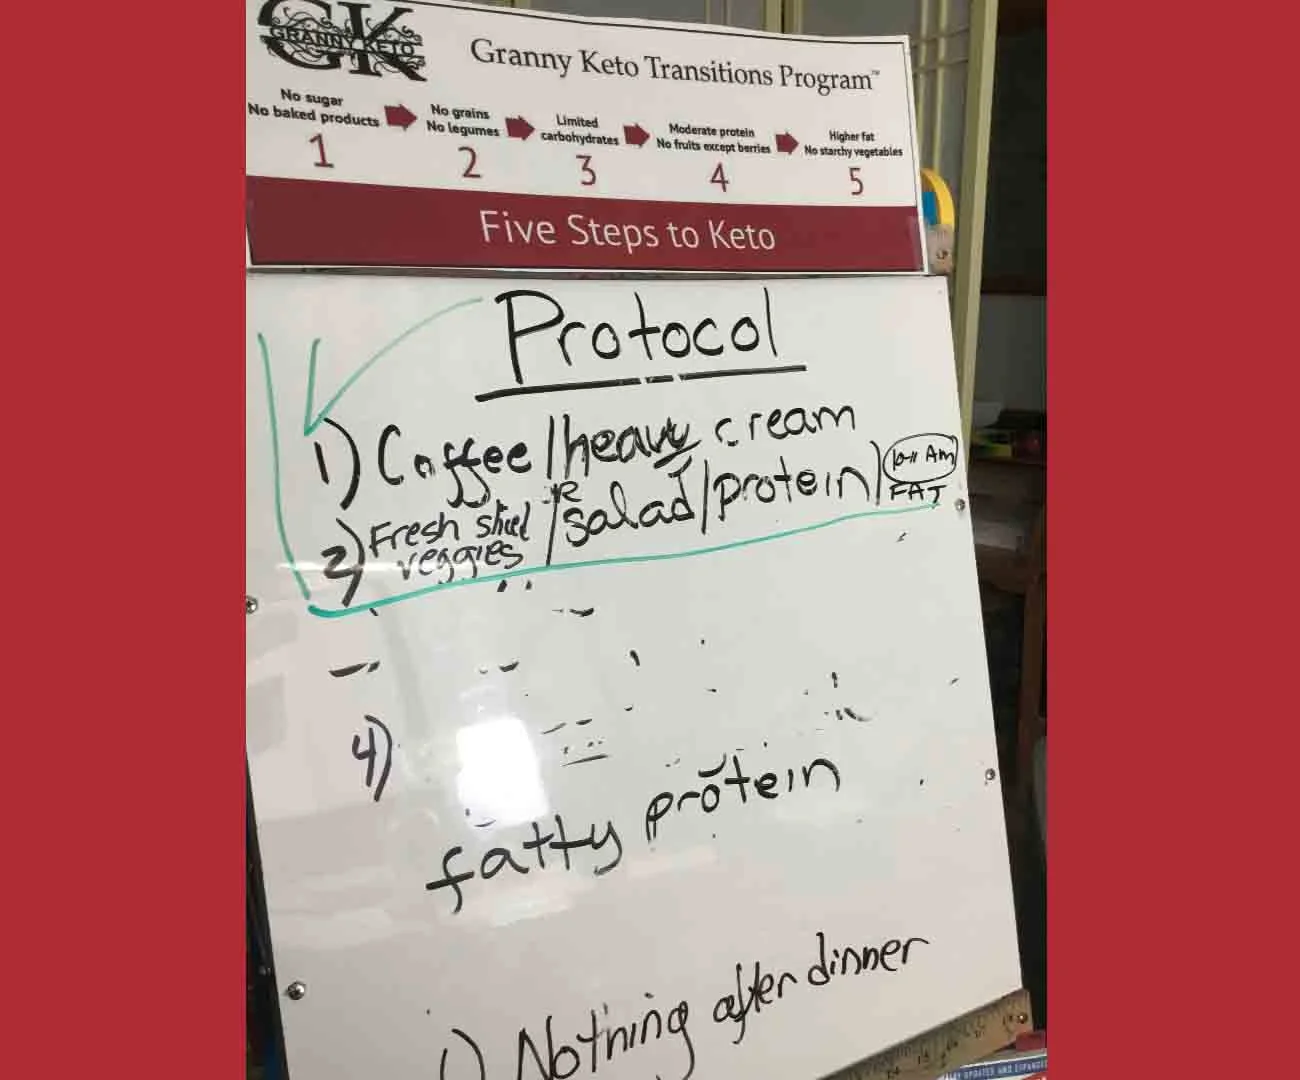 GK
GRANNY KETO
Granny Keto Transitions Program™
No sugar
No baked products
1
No grains
No legumes
2
Limited
carbohydrates
3
Moderate protein
No fruits except berries
4
Higher fat
No starchy vegetables
5
Five Steps to Keto
Protocol
1) Coffee/heavy cream
2) Fresh sliced veggies / or salad/protein/ 10-11 AM FAT
4)
fatty protein
1) Nothing after dinner
UPDATED AND EXPANDED